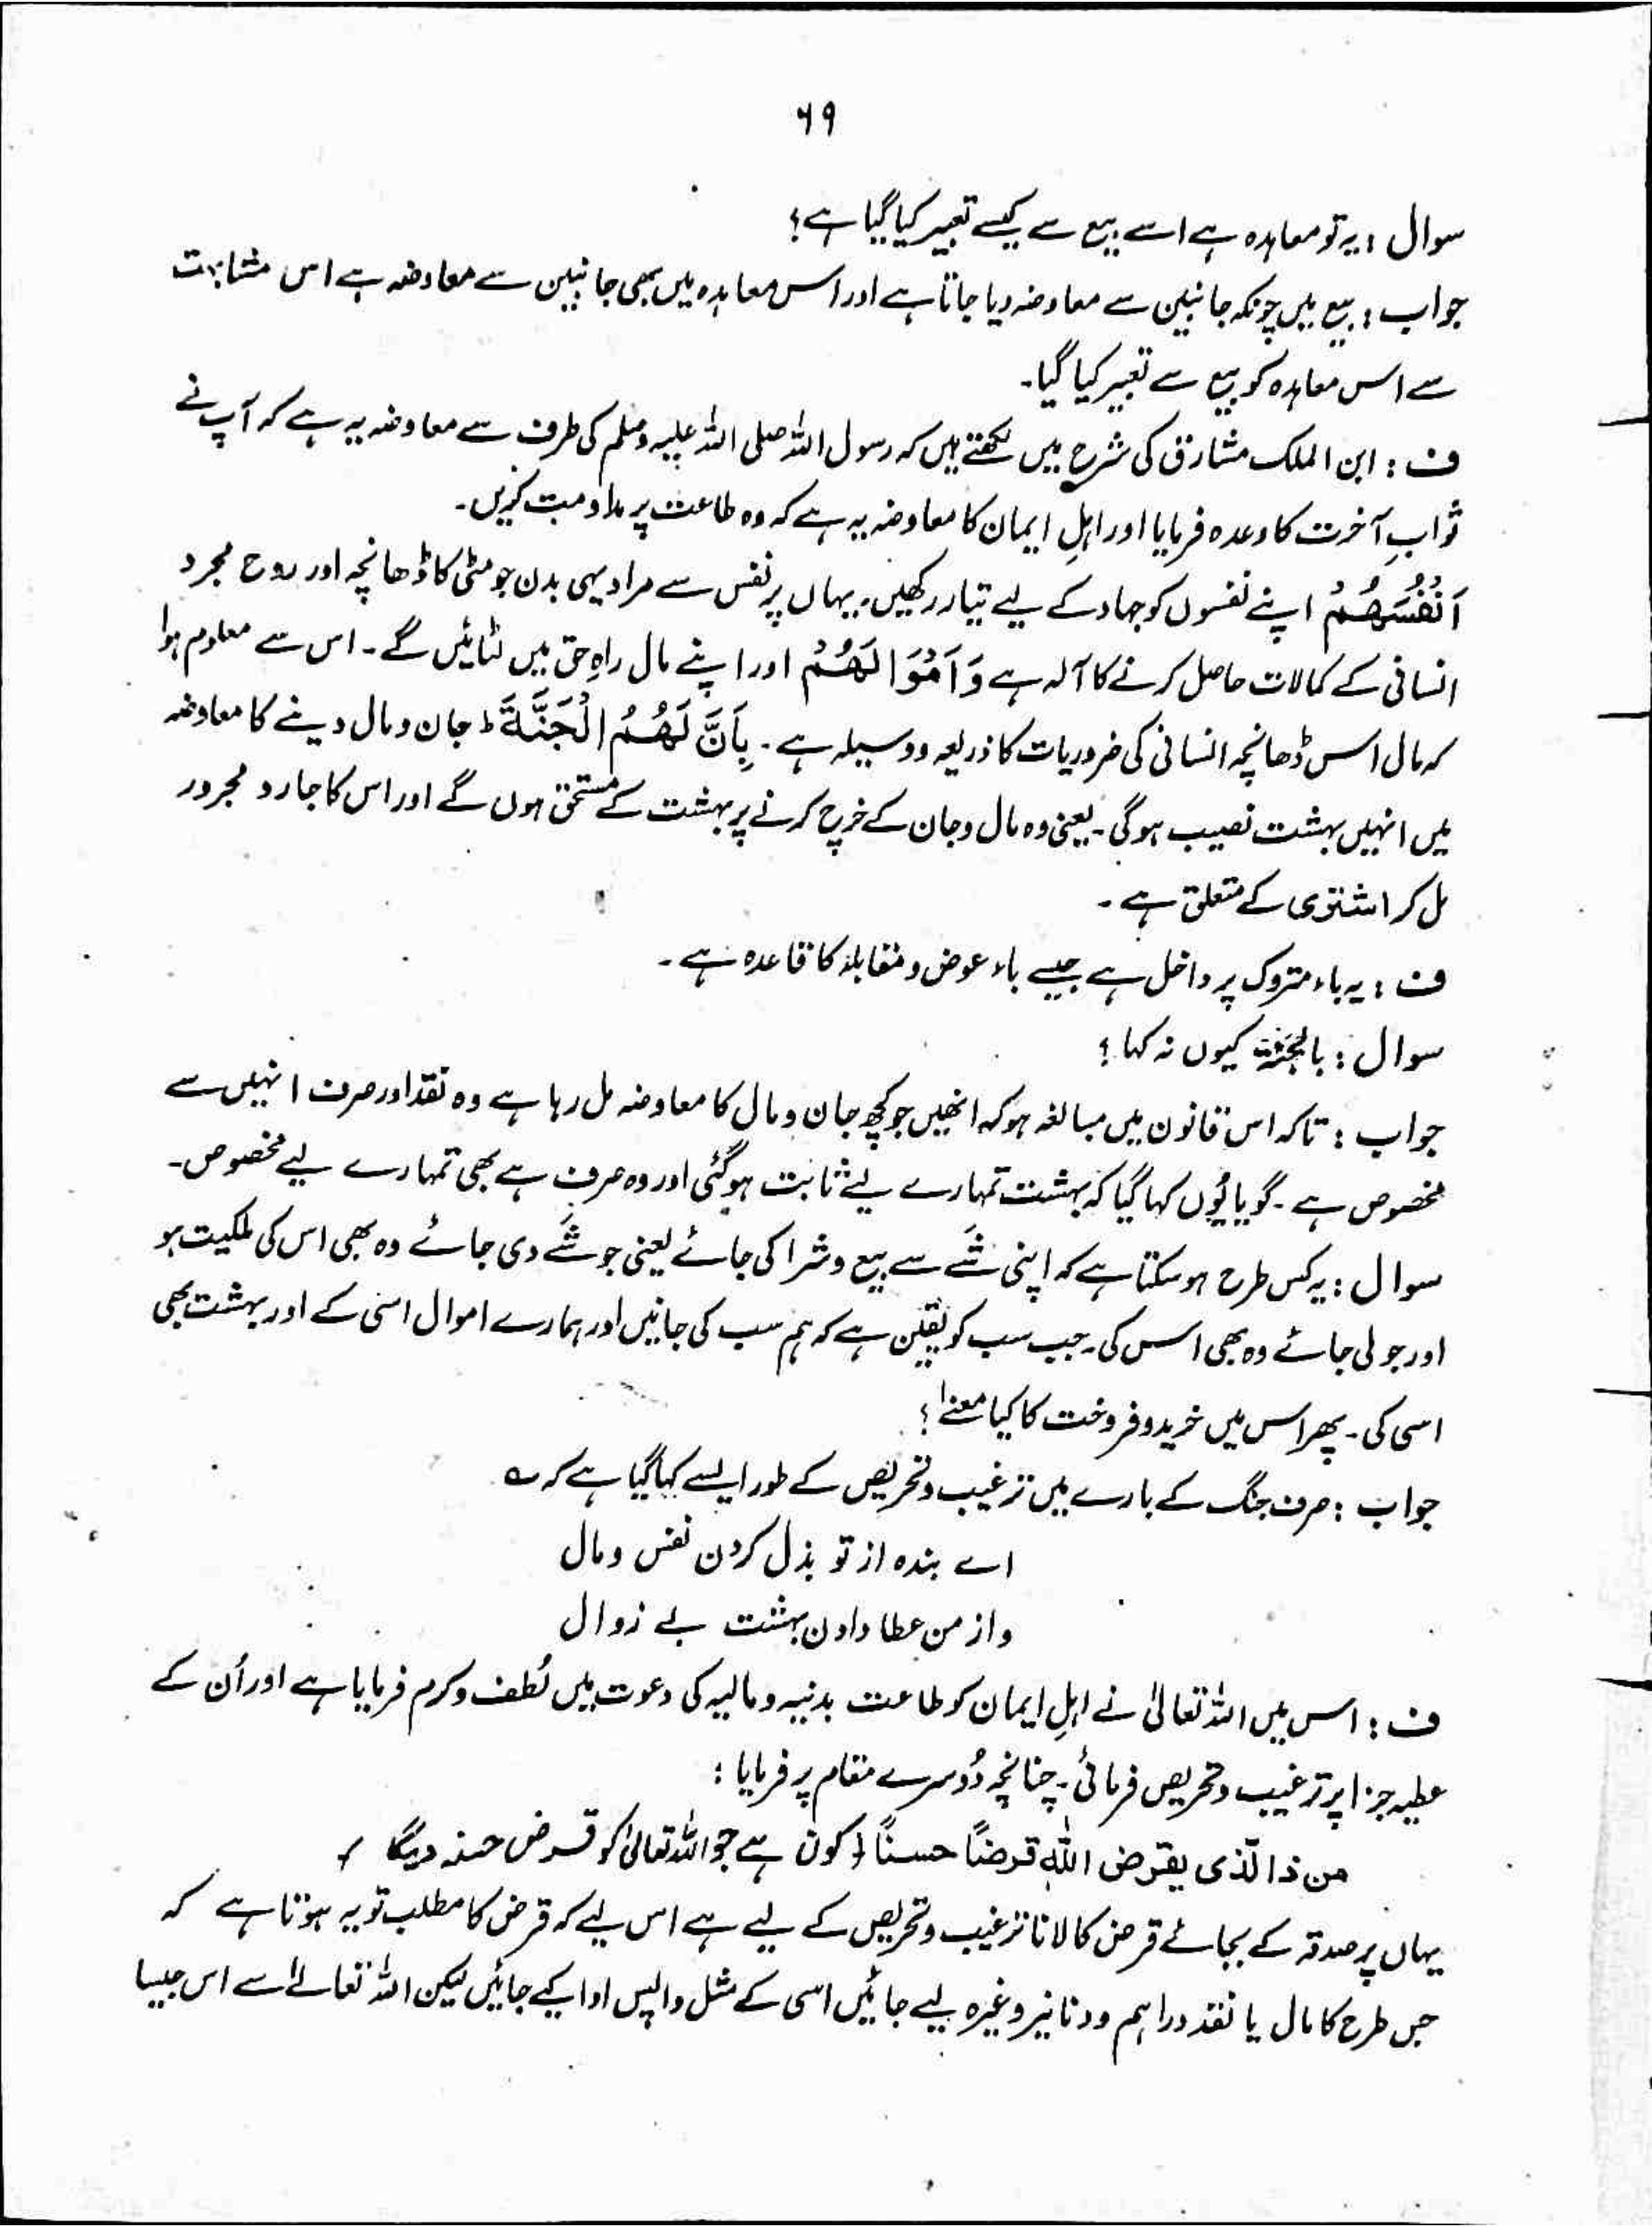 ۶۹
سوال : یہ تو معاہدہ ہے اسے بیع سے کیسے تعبیر کیا گیا ہے؟
جواب : بیع میں چونکہ جانبین سے معاوضہ دیا جاتا ہے اور اس معاہدہ میں بھی جانبین سے معاوضہ ہے اس مشابہت
سے اس معاہدہ کو بیع سے تعبیر کیا گیا۔
ف : ابن الملک مشارق کی شرح میں لکھتے ہیں کہ رسول اللہ صلی اللہ علیہ وسلم کی طرف سے معاوضہ یہ ہے کہ آپ نے
ثوابِ آخرت کا وعدہ فرمایا اور اہلِ ایمان کا معاوضہ یہ ہے کہ وہ طاعت پر مداومت کریں۔
اَنْفُسَهُمْ اپنے نفسوں کو جہاد کے لیے تیار رکھیں۔ یہاں پر نفس سے مراد یہی بدن جو مٹی کا ڈھانچہ اور روح مجرد
انسانی کے کمالات حاصل کرنے کا آلہ ہے وَاَمْوَالَهُمْ اور اپنے مال راہِ حق میں لٹائیں گے۔ اس سے معلوم ہوا
کہ مال اس ڈھانچہ انسانی کی ضروریات کا ذریعہ و وسیلہ ہے۔ بِاَنَّ لَهُمُ الْجَنَّةَ ط جان و مال دینے کا معاوضہ
میں انہیں بہشت نصیب ہوگی۔ یعنی وہ مال و جان کے خرچ کرنے پر بہشت کے مستحق ہوں گے اور اس کا جار و مجرور
مل کر اشتری کے متعلق ہے۔
ف : یہ باء متروک پر داخل ہے جیسے باء عوض و مقابلہ کا قاعدہ ہے۔
سوال : بالجنۃ کیوں نہ کہا ؟
جواب : تاکہ اس قانون میں مبالغہ ہو کہ انھیں جو کچھ جان و مال کا معاوضہ مل رہا ہے وہ نقد اور صرف انہیں سے
مخصوص ہے۔ گویا یُوں کہا گیا کہ بہشت تمہارے لیے ثابت ہوگئی اور وہ صرف ہے بھی تمہارے لیے مخصوص۔
سوال : یہ کس طرح ہو سکتا ہے کہ اپنی شَے سے بیع و شرا کی جائے یعنی جو شَے دی جائے وہ بھی اس کی ملکیت ہو
اور جو لی جائے وہ بھی اس کی۔ جب سب کو یقین ہے کہ ہم سب کی جانیں اور ہمارے اموال اسی کے اور بہشت بھی
اسی کی۔ پھر اس میں خرید و فروخت کا کیا معنیٰ ؟
جواب : صرف جنگ کے بارے میں ترغیب و تحریص کے طور ایسے کہا گیا ہے کہ ؎
اے بندہ از تو بذل کردن نفس و مال
و از من عطا دادن بہشت بے زوال
ف : اس میں اللہ تعالیٰ نے اہلِ ایمان کو طاعت بدنیہ و مالیہ کی دعوت میں لُطف و کرم فرمایا ہے اور اُن کے
عطیہ جزا پر ترغیب و تحریص فرمائی۔ چنانچہ دُوسرے مقام پر فرمایا :
من ذا الّذی یقرض اللّٰہ قرضًا حسنًا (کون ہے جو اللہ تعالیٰ کو قرض حسنہ دیگا )
یہاں پر صدقہ کے بجائے قرض کا لانا ترغیب و تحریص کے لیے ہے اس لیے کہ قرض کا مطلب تو یہ ہوتا ہے کہ
جس طرح کا مال یا نقد دراہم و دنانیر وغیرہ لیے جائیں اسی کے مثل واپس ادا کیے جائیں لیکن اللہ تعالےٰ اسے اس جیسا